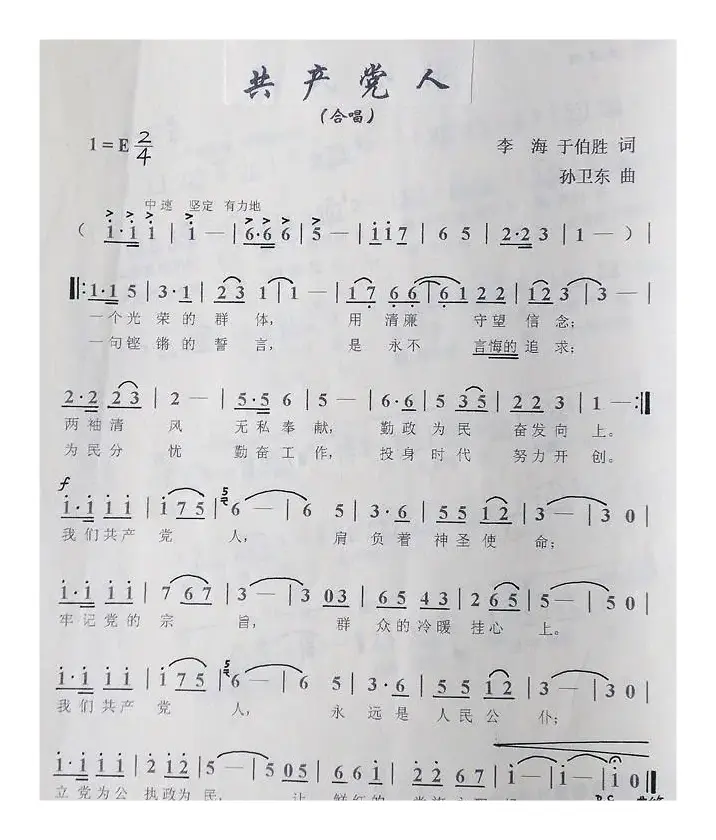 共产党人
（合唱）
1=E 2/4
李海 于伯胜 词
孙卫东 曲
中速 坚定 有力地
( i·i i | i — | 6·6 6 | 5 — | i i 7 | 6 5 | 2·2 3 | 1 — ) |
‖: 1·1 5 | 3·1 | 2 3 1 | 1 — | 1 7 6 6 | 6 1 2 2 | 1 2 3 | 3 — |
一个光荣的群体， 用清廉 守望信念；
一句铿锵的誓言， 是永不 言悔的追求；
2·2 2 3 | 2 — | 5·5 6 | 5 — | 6·6 | 5 3 5 | 2 2 3 | 1 — :‖
两袖清风 无私奉献， 勤政为民 奋发向上。
为民分忧 勤奋工作， 投身时代 努力开创。
f
i·i i i | i 7 5 | 5 6 — | 6 5 | 3·6 | 5 5 1 2 | 3 — | 3 0 |
我们共产党人， 肩负着神圣使命；
i·i i i | 7 6 7 | 3 — | 3 0 3 | 6 5 4 3 | 2 6 5 | 5 — | 5 0 |
牢记党的宗旨， 群众的冷暖挂心上。
i·i i i | i 7 5 | 5 6 — | 6 5 | 3·6 | 5 5 1 2 | 3 — | 3 0 |
我们共产党人， 永远是人民公仆；
i·i i i | 2 i 2 | 5 — | 5 0 5 | 6 6 i | 2 2 i 2 | i — | i — | i 0 ‖
立党为公 执政为民， 让鲜红的